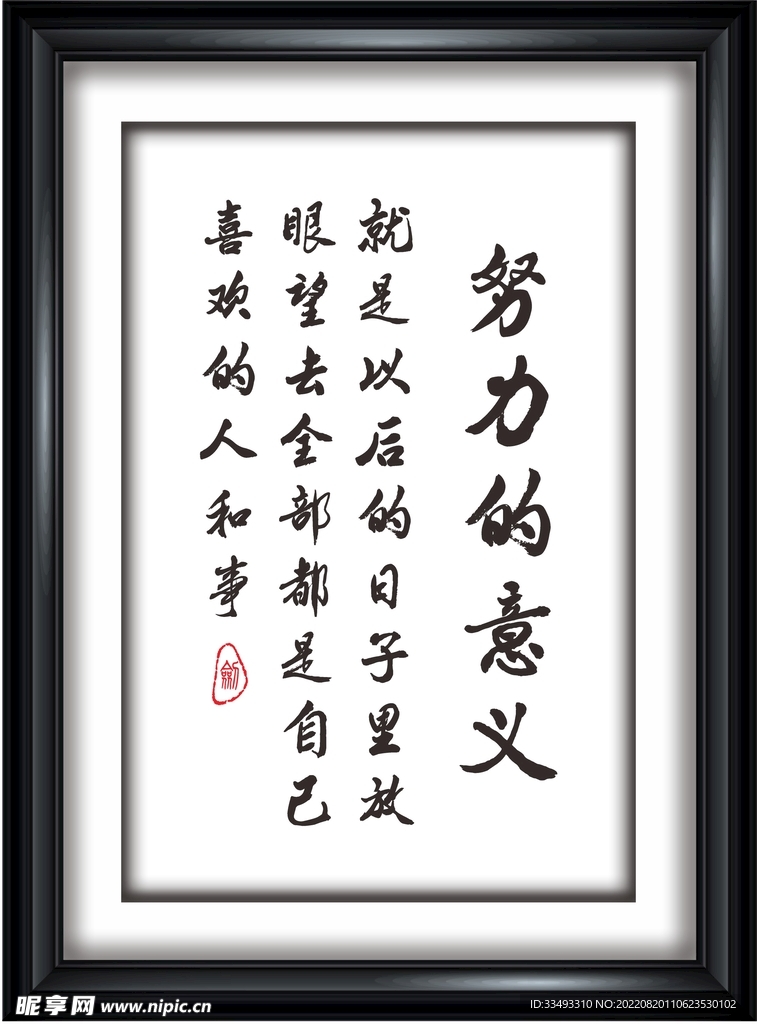 努力的意义
就是以后的日子里放
眼望去全部都是自己
喜欢的人和事
劍
昵享网 www.nipic.cn
ID:33493310 NO:20220820110623530102